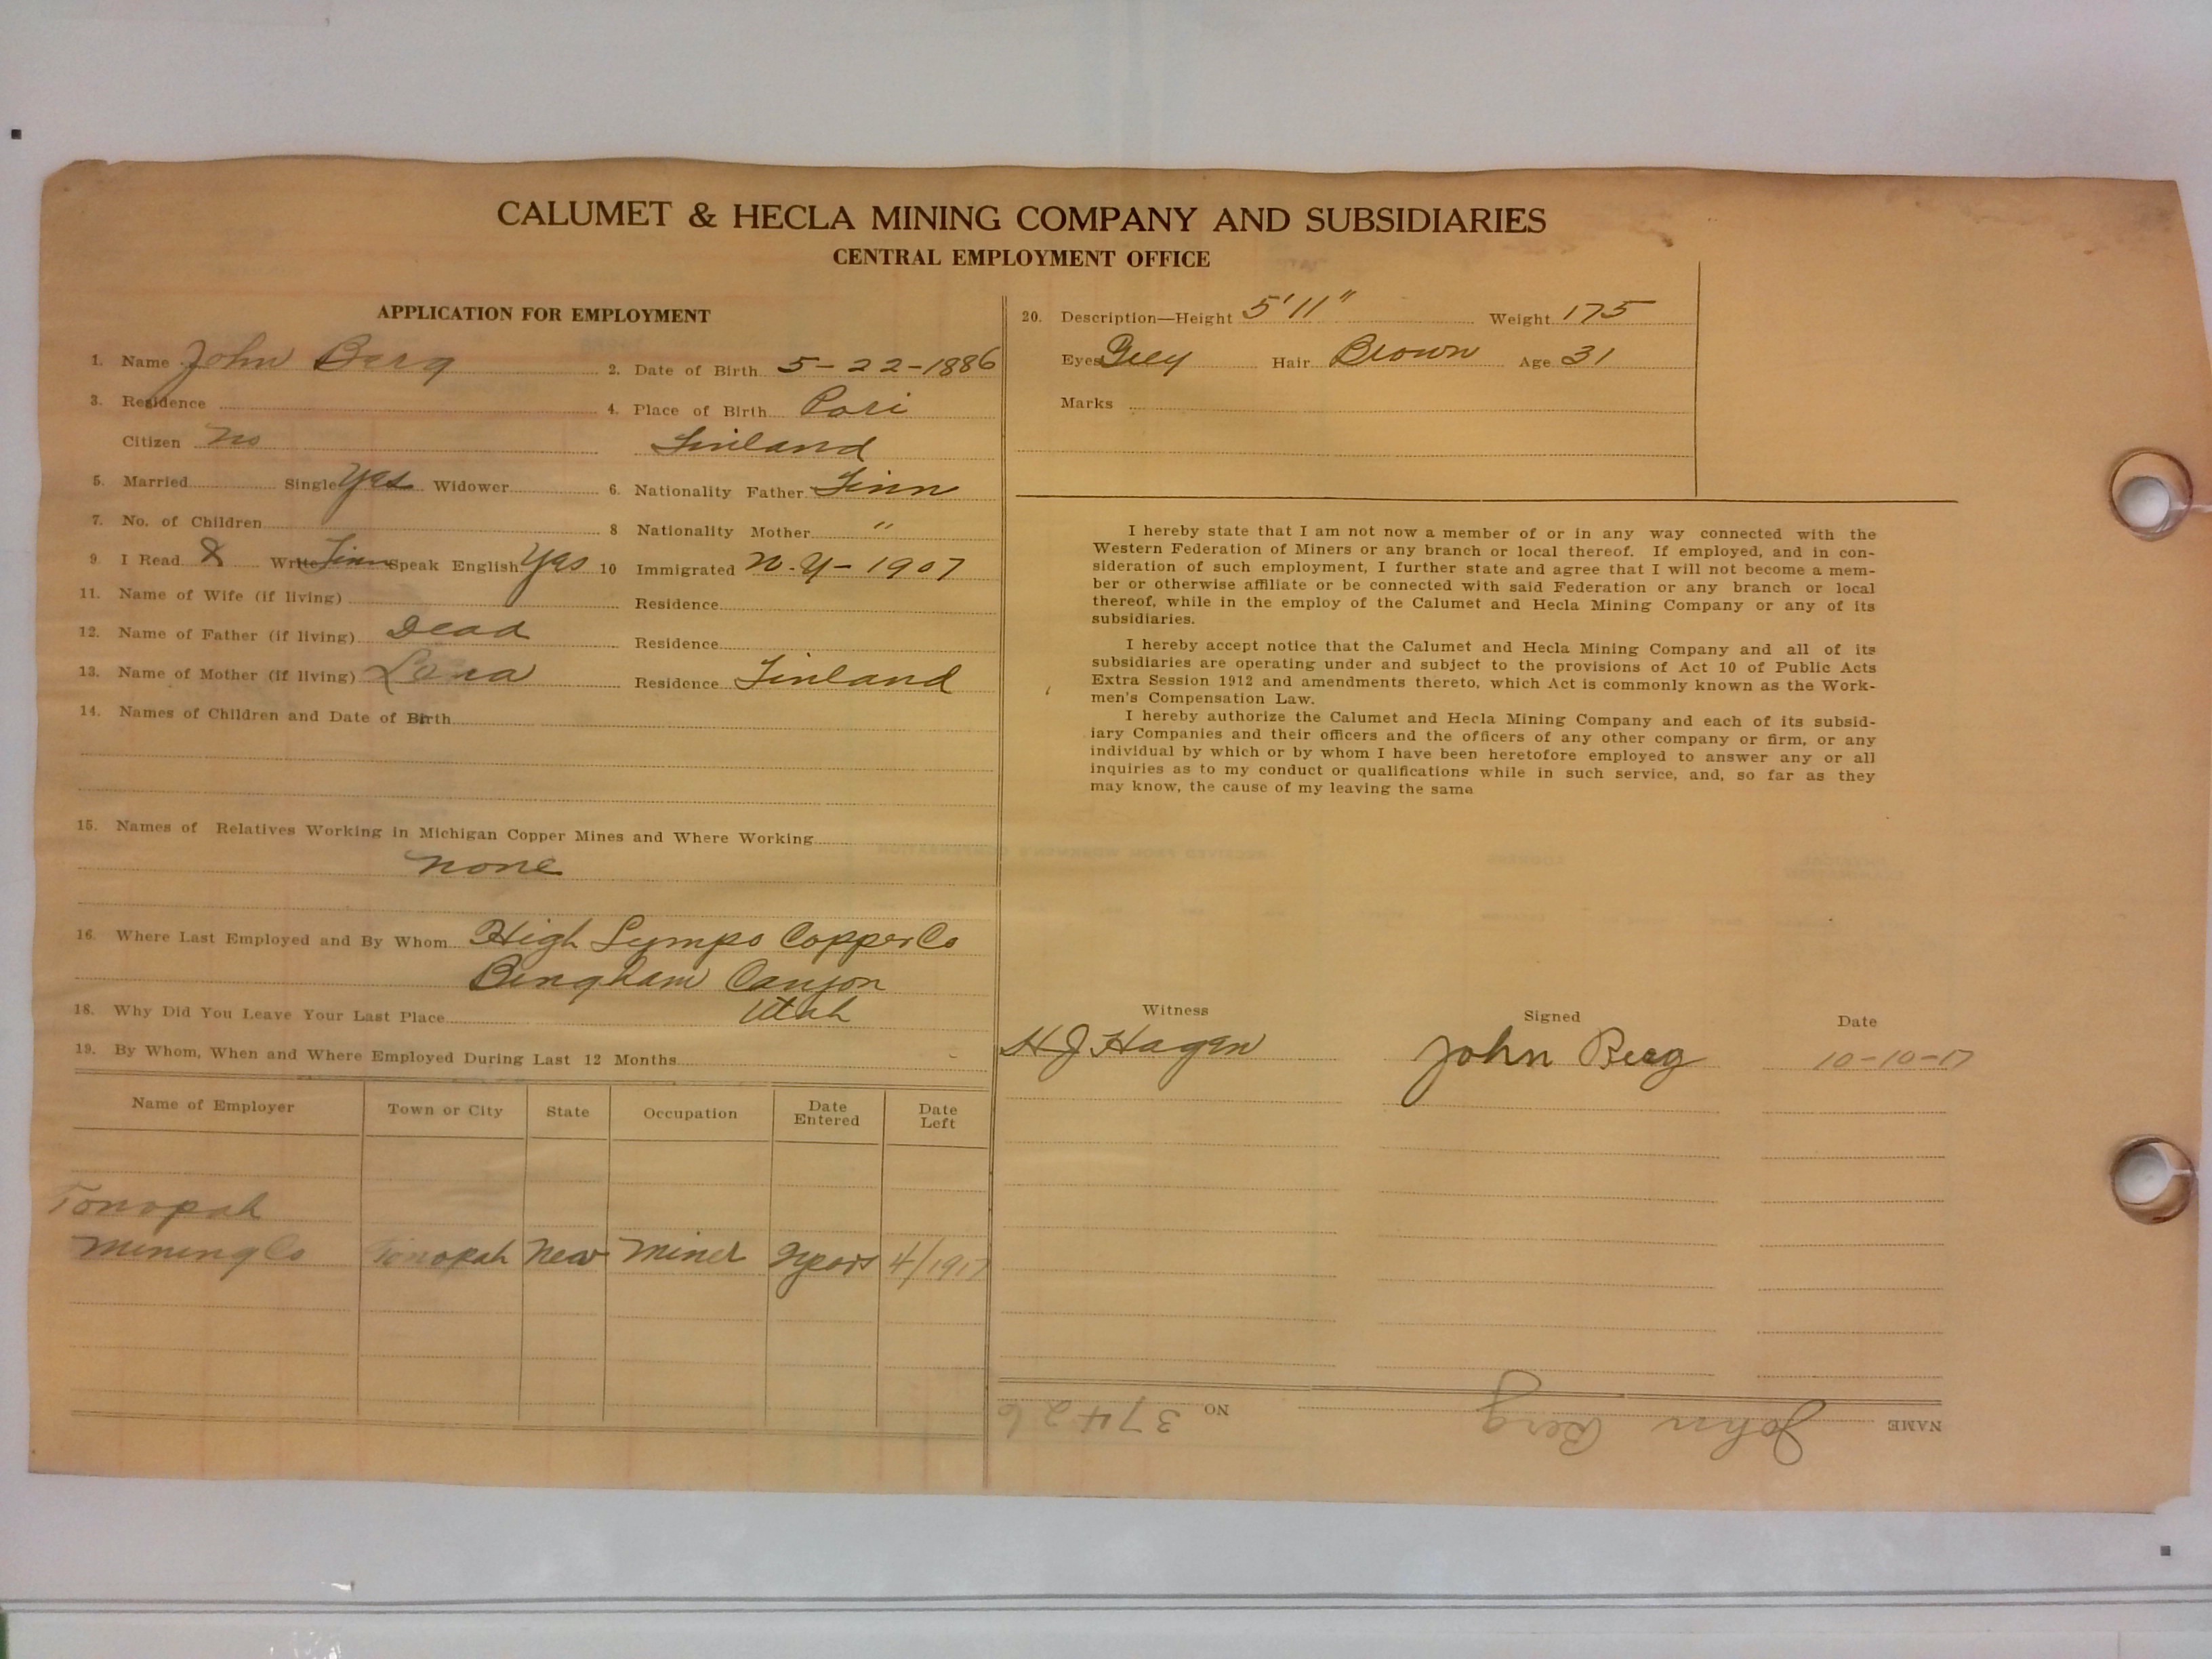 CALUMET & HECLA MINING COMPANY AND SUBSIDIARIES
CENTRAL EMPLOYMENT OFFICE
APPLICATION FOR EMPLOYMENT
1. Name John Berg 2. Date of Birth 5-22-1886
3. Residence 4. Place of Birth Pori
Citizen No Finland
5. Married Single Yes Widower 6. Nationality Father Finn
7. No. of Children 8 Nationality Mother "
9. I Read & Write Finn Speak English Yes 10 Immigrated N.Y- 1907
11. Name of Wife (if living) Residence
12. Name of Father (if living) Dead Residence
13. Name of Mother (if living) Residence Finland
14. Names of Children and Date of Birth
15. Names of Relatives Working in Michigan Copper Mines and Where Working
None
16. Where Last Employed and By Whom High Copper Co
Bingham Canyon
Utah
18. Why Did You Leave Your Last Place
19. By Whom, When and Where Employed During Last 12 Months
Name of Employer Town or City State Occupation Date Entered Date Left
Tonopah
Mining Co Tonopah Nev Miner 2 years 4/1917
20. Description—Height 5'11" Weight 175
Eyes Grey Hair Brown Age 31
Marks
I hereby state that I am not now a member of or in any way connected with the
Western Federation of Miners or any branch or local thereof. If employed, and in con-
sideration of such employment, I further state and agree that I will not become a mem-
ber or otherwise affiliate or be connected with said Federation or any branch or local
thereof, while in the employ of the Calumet and Hecla Mining Company or any of its
subsidiaries.
I hereby accept notice that the Calumet and Hecla Mining Company and all of its
subsidiaries are operating under and subject to the provisions of Act 10 of Public Acts
Extra Session 1912 and amendments thereto, which Act is commonly known as the Work-
men's Compensation Law.
I hereby authorize the Calumet and Hecla Mining Company and each of its subsid-
iary Companies and their officers and the officers of any other company or firm, or any
individual by which or by whom I have been heretofore employed to answer any or all
inquiries as to my conduct or qualifications while in such service, and, so far as they
may know, the cause of my leaving the same
Witness Signed Date
H J Hagen John Berg 10-10-17
NAME John Berg NO 37426